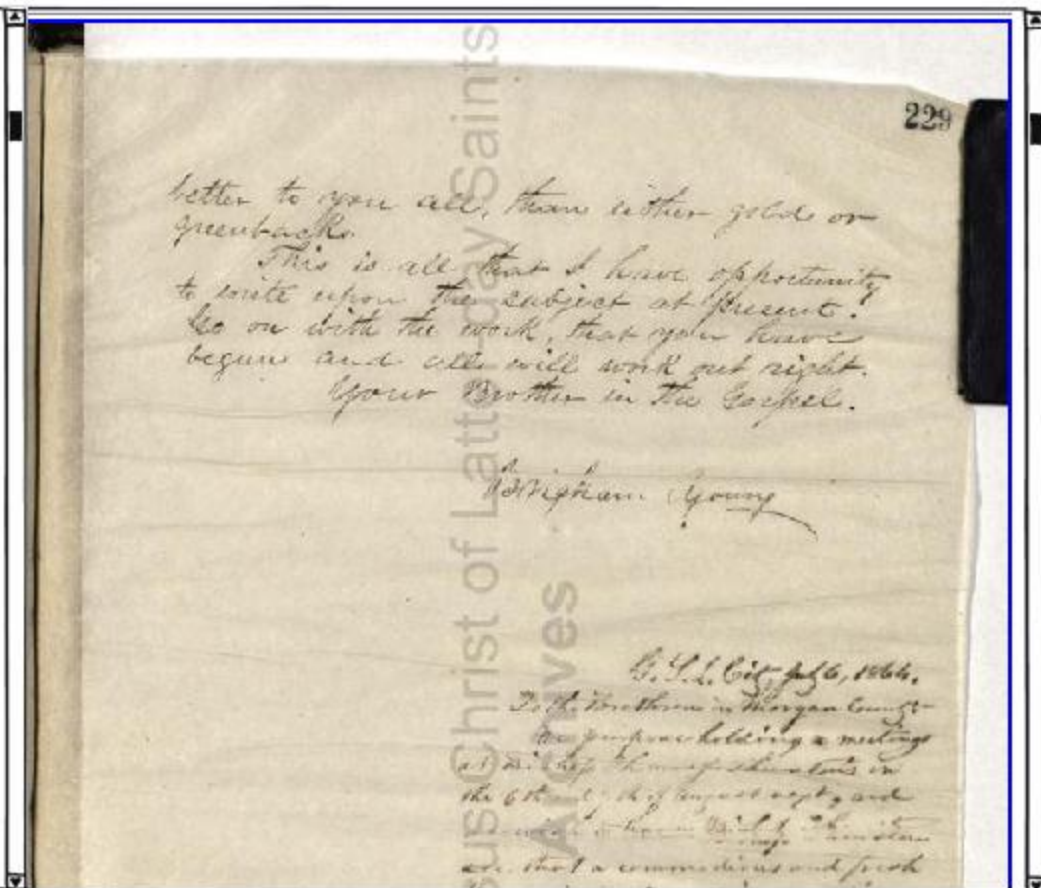 229
better to you all, than either gold or
greenbacks.
This is all that I have opportunity
to write upon the subject at present.
Go on with the work, that you have
begun and all will work out right.
Your Brother in the Gospel.
Brigham Young
G. S. L. City, July 6, 1866.
To the Brethren in Morgan County
We purpose holding a meeting
at
in
the 6th
of August next, and
that a commodious and fresh
us Christ of Latter-day Saints
Archives